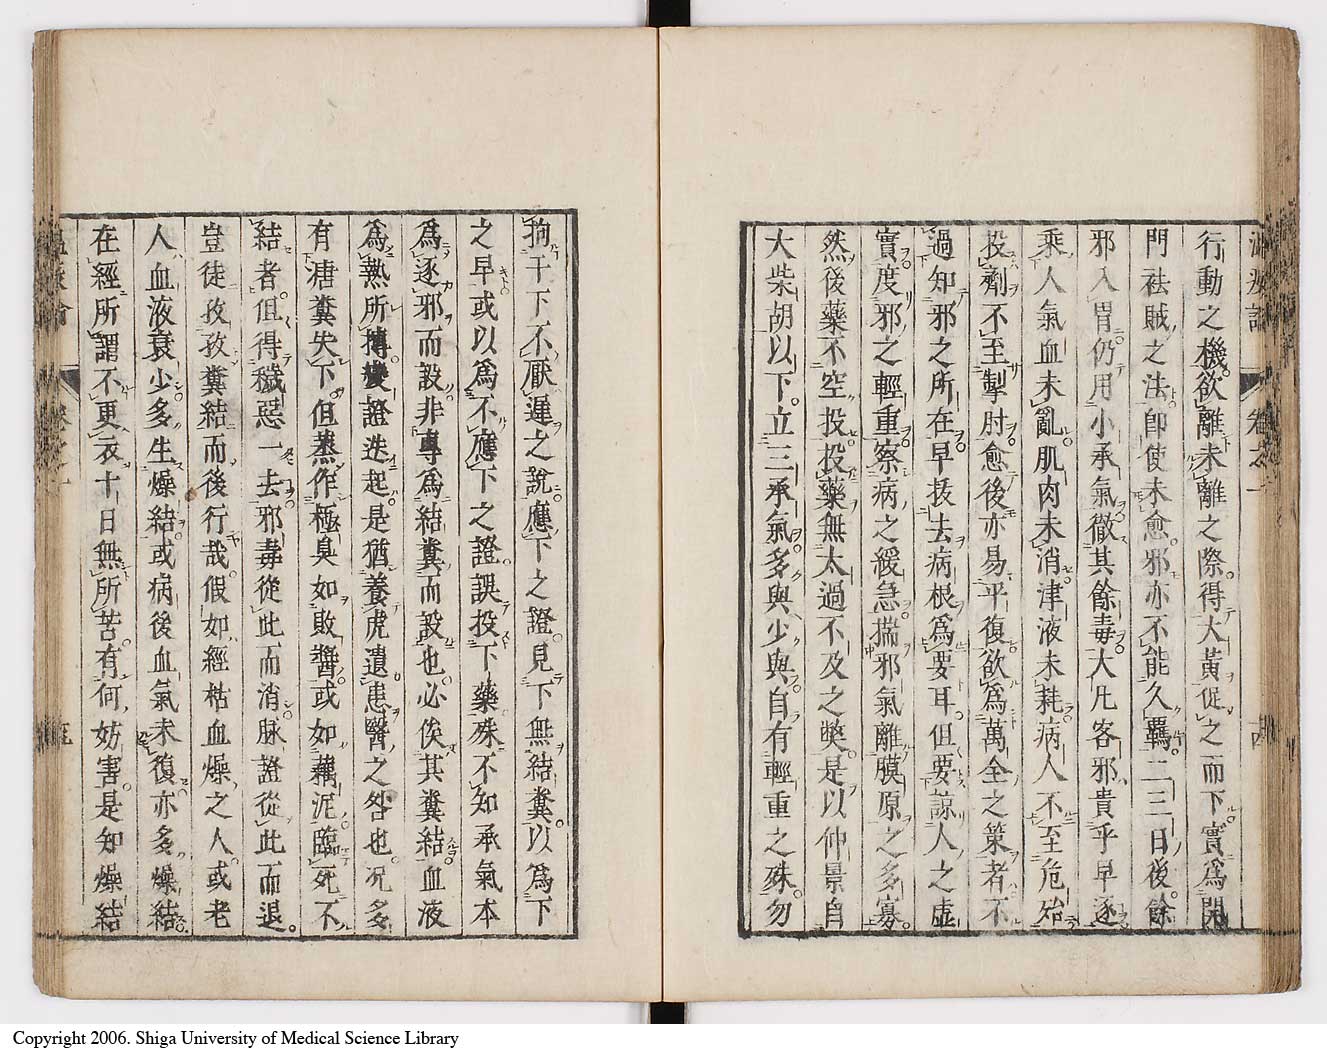 行動之機欲離未離之際得大黃促之而下實爲開
門袪賊之法卽使未愈邪亦不能久羈二三日後餘
邪入胃仍用小承氣徹其餘毒大凡客邪貴乎早逐
乘人氣血未亂肌肉未消津液未耗病人不至危殆
投劑不至掣肘愈後亦易平復欲爲萬全之策者不
過知邪之所在早拔去病根爲要耳但要諒人之虛
實度邪之輕重察病之緩急揣邪氣離膜原之多寡
然後藥不空投投藥無太過不及之獘是以仲景自
大柴胡以下立三承氣多與少與自有輕重之殊勿
拘于下不厭遲之說應下之證見下無結糞以爲下
之早或以爲不應下之證誤投下藥殊不知承氣本
爲逐邪而設非專爲結糞而設也必俟其糞結血液
爲熱所搏變證迭起是猶養虎遺患醫之咎也况多
有溏糞失下但蒸作極臭如敗醬或如藕泥臨死不
結者但得穢惡一去邪毒從此而消脉證從此而退
豈徒孜孜糞結而後行哉假如經枯血燥之人或老
人血液衰少多生燥結或病後血氣未復亦多燥結
在經所謂不更衣十日無所苦有何妨害是知燥結
Copyright 2006. Shiga University of Medical Science Library